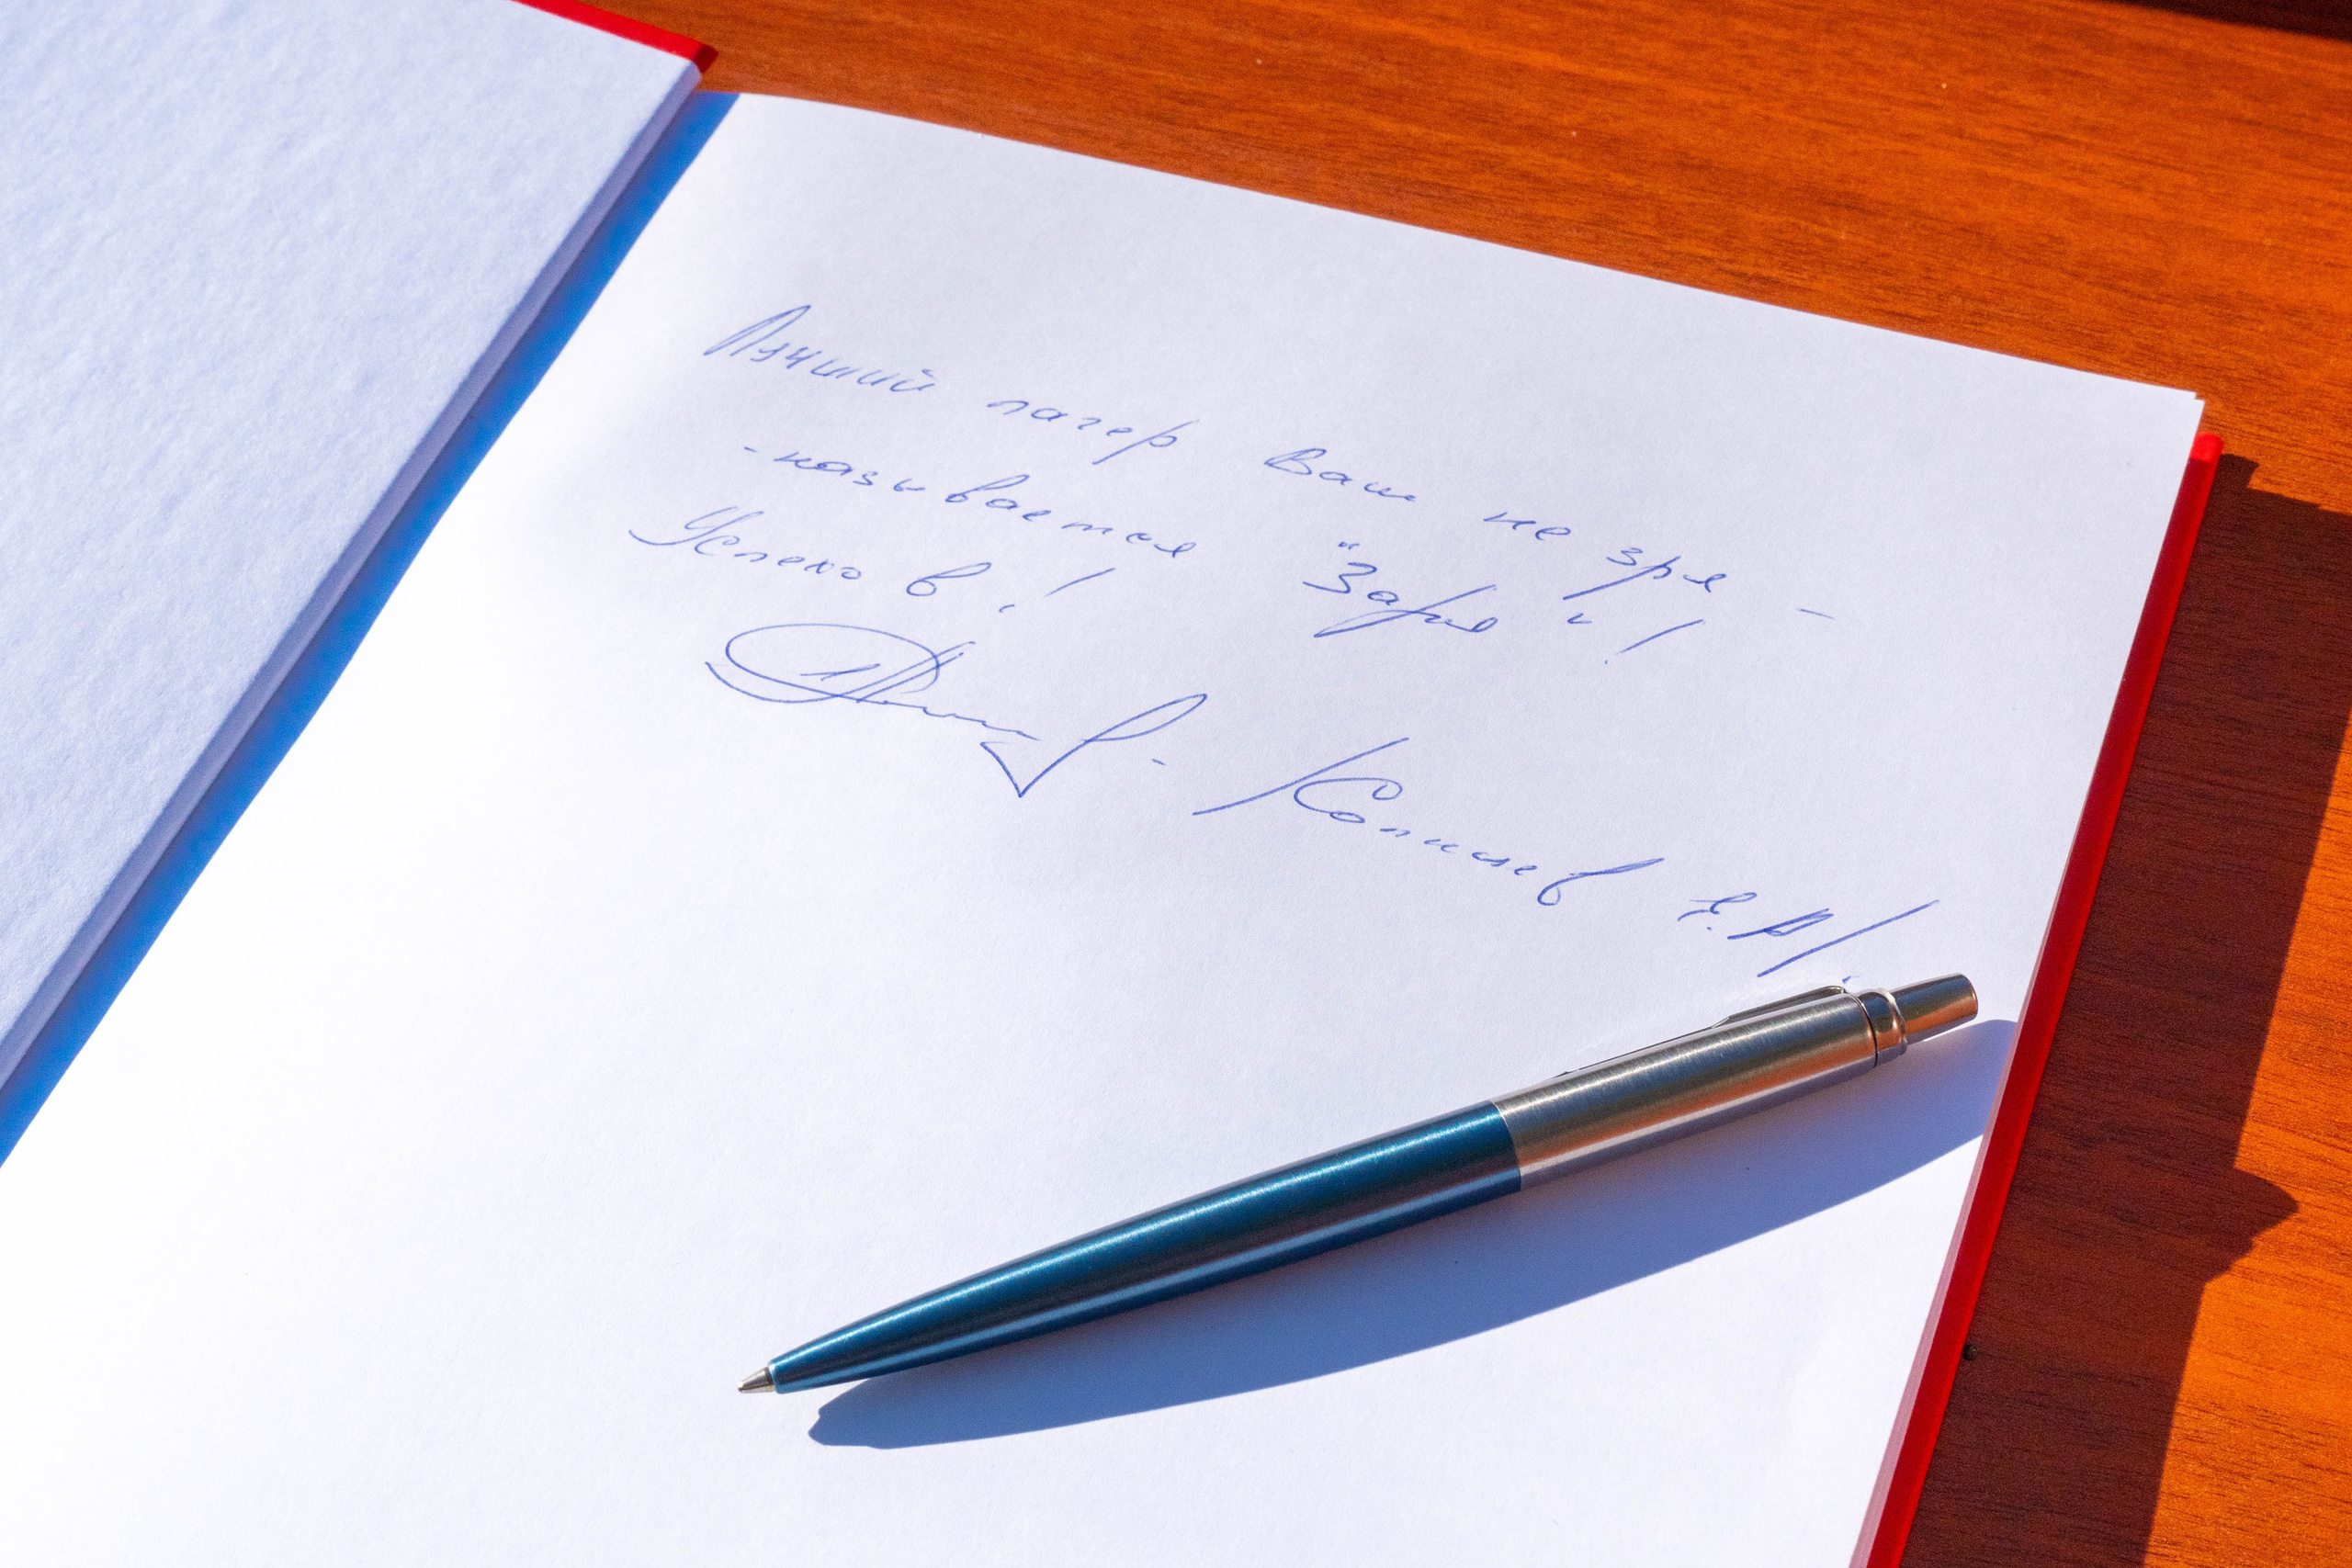 Лучший лагер Ваш не зря -
- называется "Заря"!
Успехов!
/ Е.А/